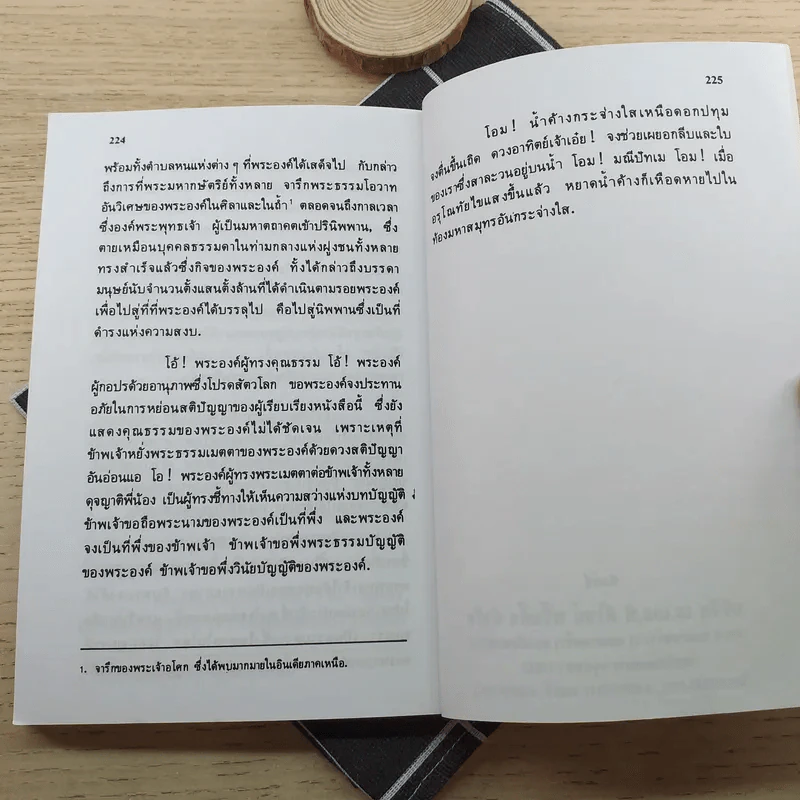 224
พร้อมทั้งตำบลหนแห่งต่าง ๆ ที่พระองค์ได้เสด็จไป กับกล่าว
ถึงการที่พระมหากษัตริย์ทั้งหลาย จารึกพระธรรมโอวาท
อันวิเศษของพระองค์ในศิลาและในถ้ำ¹ ตลอดจนถึงกาลเวลา
ซึ่งองค์พระพุทธเจ้า ผู้เป็นมหาตถาคตเข้าปรินิพพาน, ซึ่ง
ตายเหมือนบุคคลธรรมดาในท่ามกลางแห่งฝูงชนทั้งหลาย
ทรงสำเร็จแล้วซึ่งกิจของพระองค์ ทั้งได้กล่าวถึงบรรดา
มนุษย์นับจำนวนตั้งแสนตั้งล้านที่ได้ดำเนินตามรอยพระองค์
เพื่อไปสู่ที่ที่พระองค์ได้บรรลุไป คือไปสู่นิพพานซึ่งเป็นที่
ดำรงแห่งความสงบ.
โอ้! พระองค์ผู้ทรงคุณธรรม โอ้! พระองค์
ผู้กอปรด้วยอานุภาพซึ่งโปรดสัตวโลก ขอพระองค์จงประทาน
อภัยในการหย่อนสติปัญญาของผู้เรียบเรียงหนังสือนี้ ซึ่งยัง
แสดงคุณธรรมของพระองค์ไม่ได้ชัดเจน เพราะเหตุที่
ข้าพเจ้าหยั่งพระธรรมเมตตาของพระองค์ด้วยดวงสติปัญญา
อันอ่อนแอ โอ! พระองค์ผู้ทรงพระเมตตาต่อข้าพเจ้าทั้งหลาย
ดุจญาติพี่น้อง เป็นผู้ทรงชี้ทางให้เห็นความสว่างแห่งบทบัญญัติ
ข้าพเจ้าขอถือพระนามของพระองค์เป็นที่พึ่ง และพระองค์
จงเป็นที่พึ่งของข้าพเจ้า ข้าพเจ้าขอพึ่งพระธรรมบัญญัติ
ของพระองค์ ข้าพเจ้าขอพึ่งวินัยบัญญัติของพระองค์.
1. จารึกของพระเจ้าอโศก ซึ่งได้พบมากมายในอินเดียภาคเหนือ.
225
โอม! น้ำค้างกระจ่างใสเหนือดอกปทุม
จงตื่นขึ้นเถิด ดวงอาทิตย์เจ้าเอ๋ย! จงช่วยเผยอกลีบและใบ
ของเราซึ่งสาละวนอยู่บนน้ำ โอม! มณีปัทเม โอม! เมื่อ
อรุโณทัยไขแสงขึ้นแล้ว หยาดน้ำค้างก็เหือดหายไปใน
ท้องมหาสมุทรอันกระจ่างใส.